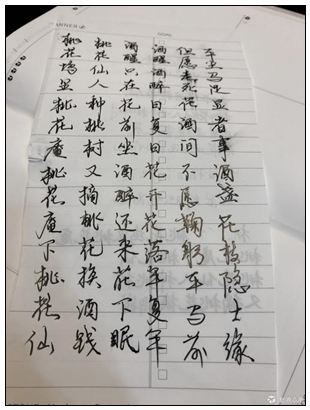 桃花坞里桃花庵桃花庵下桃花仙
桃花仙人种桃树又摘桃花换酒钱
酒醒只在花前坐酒醉还来花下眠
酒醒酒醉日复日花开花落年复年
但愿老死花酒间不愿鞠躬车马前
车尘马足显者事酒盏花枝隐士缘